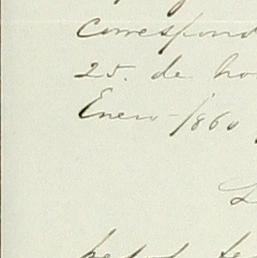 correspond
25. de ho
Enero-1860
L